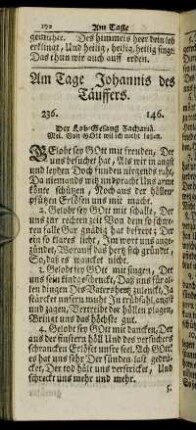 192 Am Tage
gemuhte. Des himmels heer dein lob
erklingt, Und heilig, heilig, heilig singt.
Das thun wir auch auff erden.
Am Tage Johannis des
Täuffers.
236. 146.
Der Lob-Gesang Zachariä.
Mel. Wo GOtt
GElobt sey GOtt mit freuden, Der
uns besuchet hat, Als wir in angst
und leyden Doch funden nirgends raht,
Da niemands mit zuspracht Uns arme
könte schützen, Noch aus der höllen-
pfützen Erlösen uns mit macht.
2. Gelobt sey GOtt mit schalle, Der
uns zur rechten zeit Von dem so schwe-
ren falle Gar gnädig hat befreyet Der
ein so klares licht, Im wort uns ange-
zündet, Worauff das hertz sich gründet,
So, daß es wancket nicht.
3. Gelobt sey GOtt mit singen, Der
uns sein kind geschenckt, Daß uns für al-
len dingen Des Vatersherz gelenckt, Ja
stärcket unsern muht In trübsahl, angst
und zagen, Vertreibt der höllen plagen,
Bringt uns das höchste gut.
4. Gelobt sey GOtt mit dancken, Der
aus der finstern höll Und des versuchers
schrancken Erlöset unsre seel. Ach GOtt
es hat uns sehr Der sünden-last gedrü-
cket, Der tod hält uns verstricket, Und
schreckt uns mehr und mehr.
5.